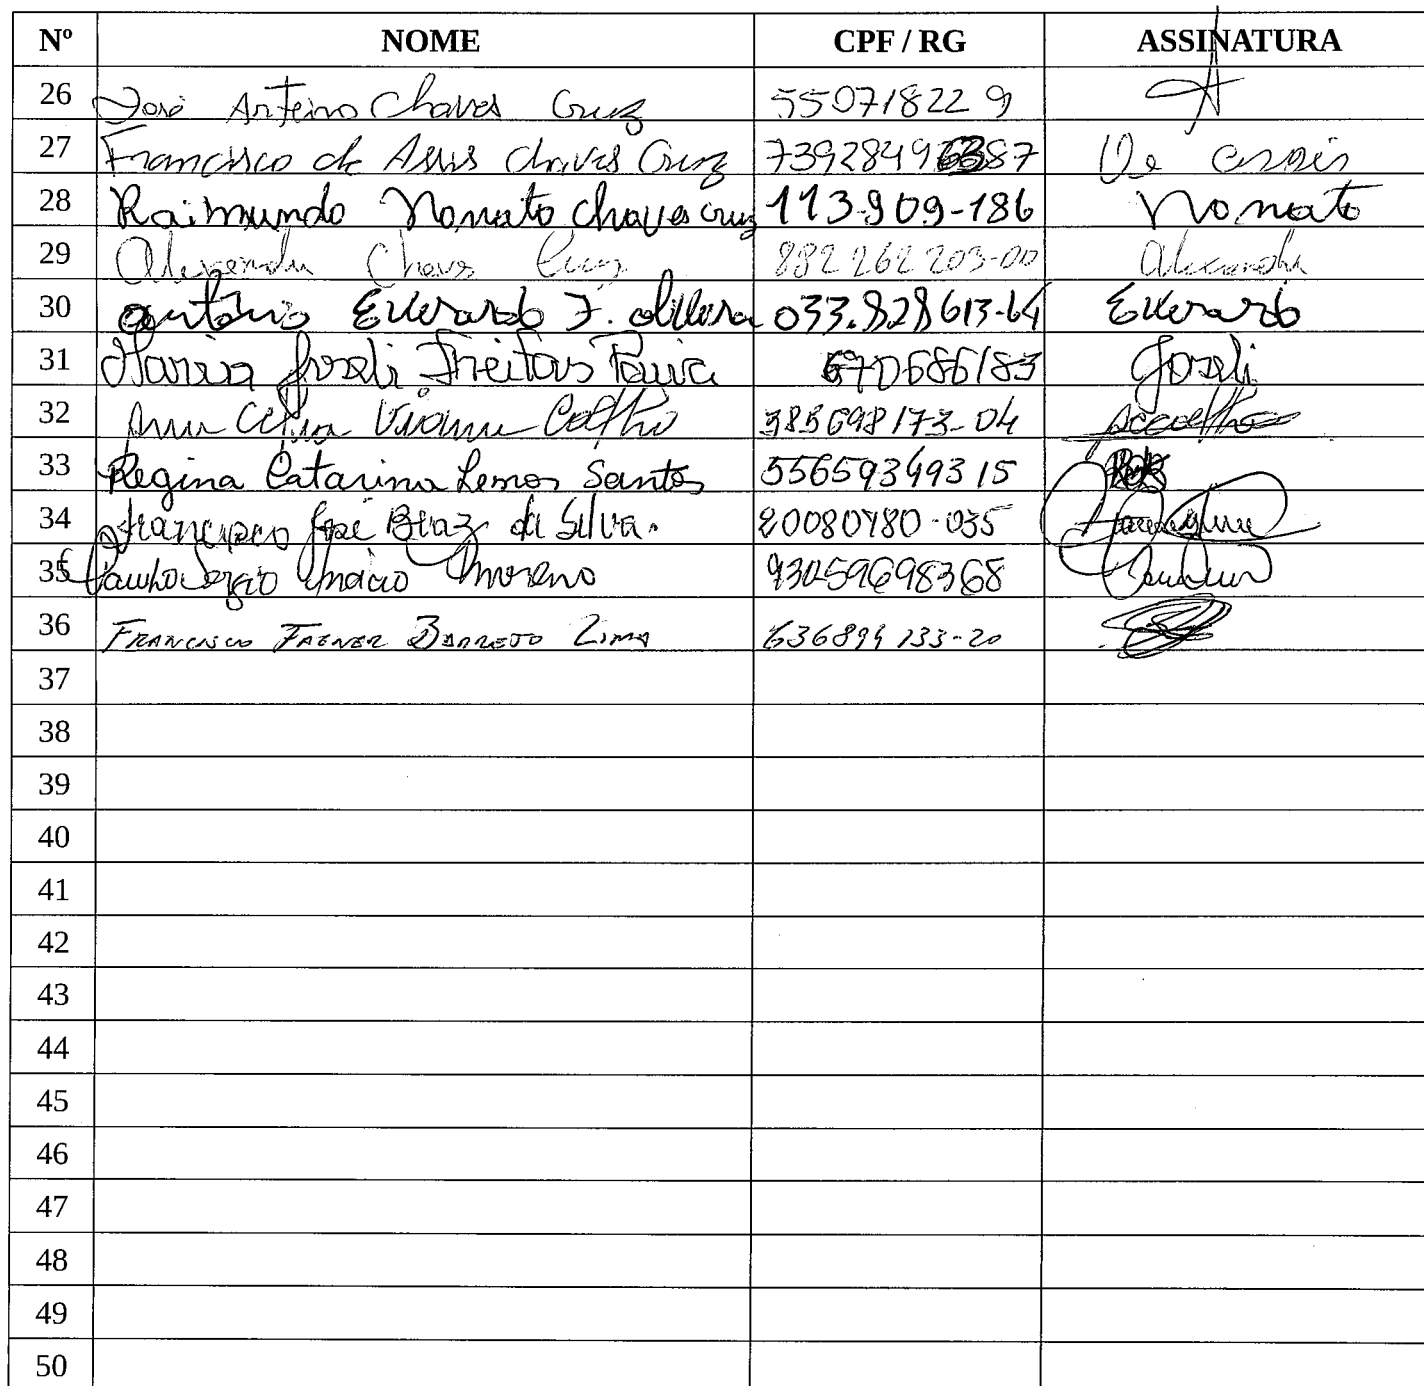 Nº NOME CPF / RG ASSINATURA
26 José Arteiro Chaves Cruz 550718229
27 Francisco de Assis Chaves Cruz De assis
28 Raimundo Nonato chaves cruz 113.909-186 Nonato
29 Alexandre Chaves Cruz 882 262 203-00 Alexandre
30 Antônio Everardo F. Oliveira 033.828613-64 Everardo
31 Maria Joseli Freitas Paiva 670686183 Joseli
32 Ana Célia Viana Coelho 385698173-04 accoelho
33 Regina Catarina Lemos Santos 55659349315
34 Francisco José Braz da Silva. 20080780-035
35 Paulho Sergio Inácio Moreno 93059698368
36 FRANCISCO FAGNER BARRETO LIMA 636894133-20
37
38
39
40
41
42
43
44
45
46
47
48
49
50